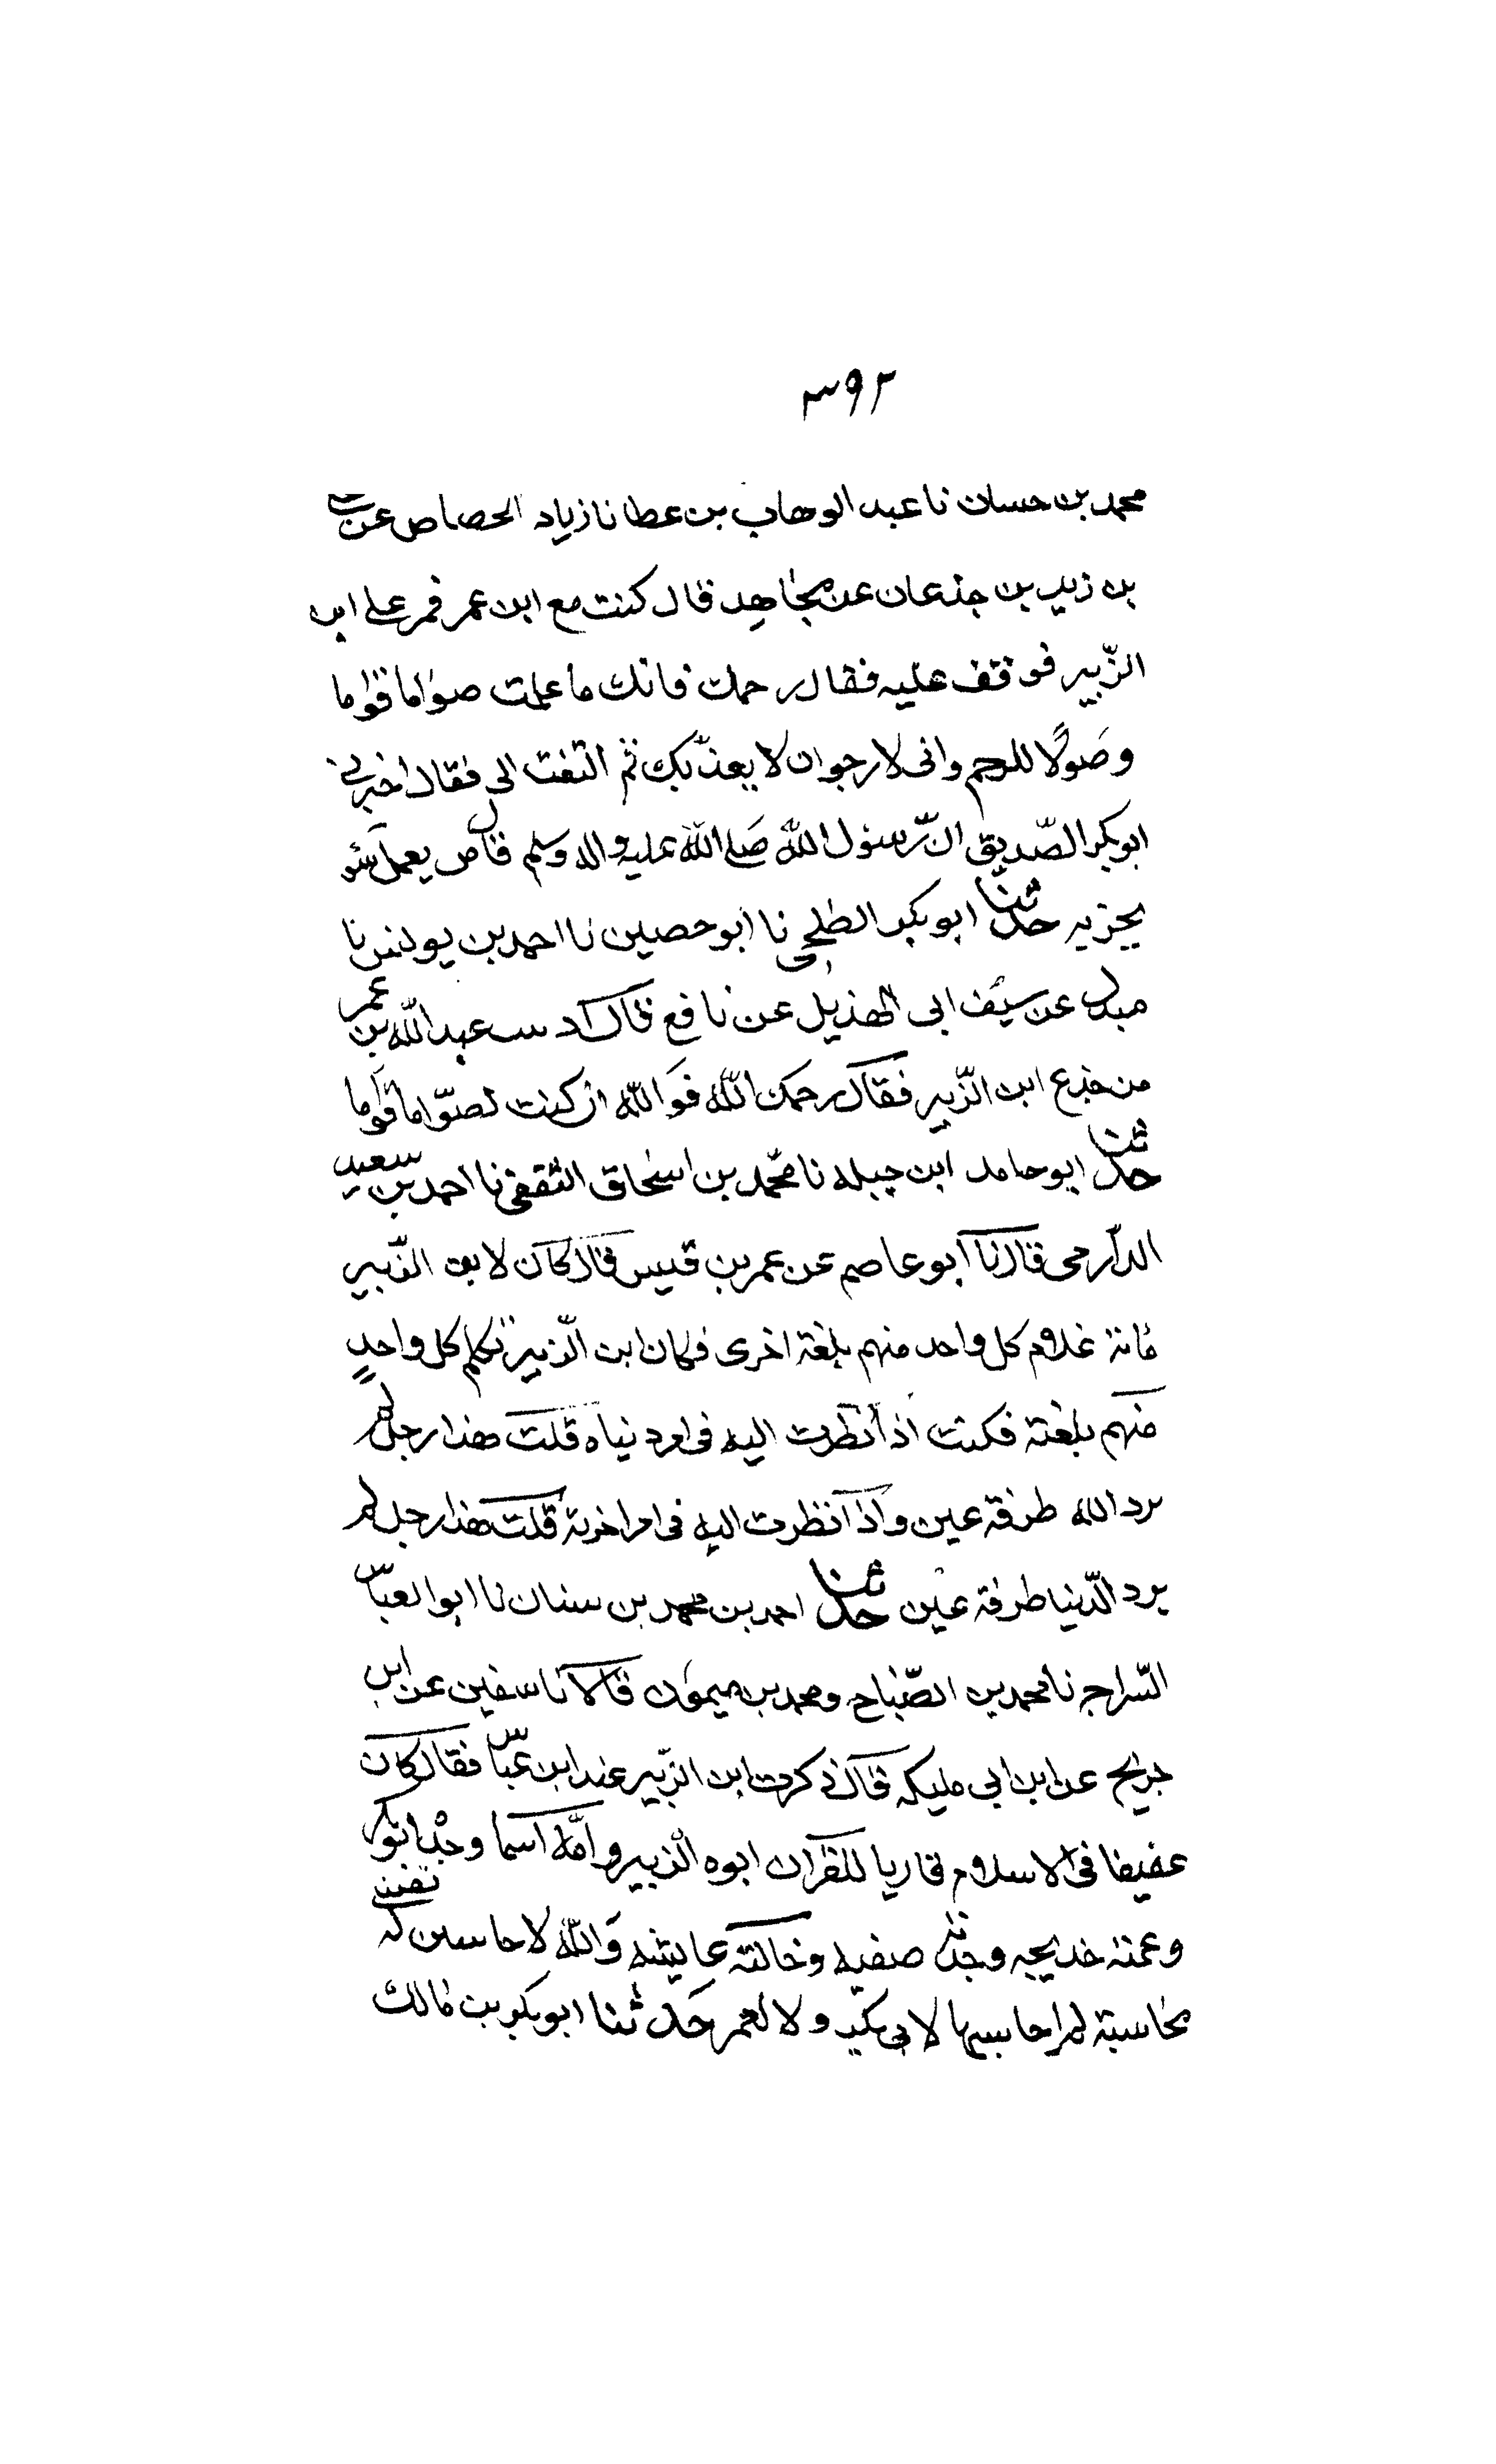 ٣٩٢
محمد بن حسان نا عبد الوهاب بن عطا نا زياد الحصاص عن علي
بن زيد بن جدعان عن مجاهد قال كنت مع ابن عمر فمر على ابن
الزّبير فوقف عليه فقال رحمك فانك ما علمت صواما قواما
وصولًا للرحم وانى لارجوان لا يعذّبك ثم التفت الى فقال اخبرني
ابو بكر الصّديق انّ رسول اللّه صَلى اللّه عليه واله وسلم قال من يعمل سَو
يجزبه حدّثنا ابو بكر الطلحى نا ابو حصين نا احمد بن يونس نا
مندل عن سيف ابى الهذيل عن نافع قال عبد اللّه بن عمر
من جذع ابن الزّبير فقال رحمك اللّه فَو اللّه ان كنت لصوّاما قوّاما
حدّثنا ابو حامد ابن جبله نا محمّد بن اسحاق الثقفى نا احمد بن سعيد
الدّارمى قال نا ابو عاصم عن عمر بن قيس قال كان لابن الزّبير
مائة غلام كل واحد منهم بلغة اخرى فكان ابن الزّبير تكلم كل واحدٍ
منهم بلغته فكنت اذا نظرت اليه فى امر دنياه قلت هذا رجل لم
يرد الله طرفة عين واذا نظرت اليه فى امر اخرته قلت هذا رجل لم
يرد الدّنيا طرفة عين حدّثنا احمد بن محمد بن سنان نا ابو العبّاس
السّراج نا محمد بن الصّباح ومحمد بن ميمون قالا نا سفين عن ابن
جريح عن ابن ابى مليكه قال ذكرت ابن الزّبير عند ابن عبّاس فقال كان
عفيفا فى الاسلام قاريا للقران ابوه الزّبير وامّه اسما وجدّه ابو بكر
وعمته خديجه وجدّته صفيه وخالته عايشه وَاللّه لاحاسبن له نفسى
محاسبة لم احاسبها لابى بكر ولا لعمر حَدثنا ابو بكر بن مالك